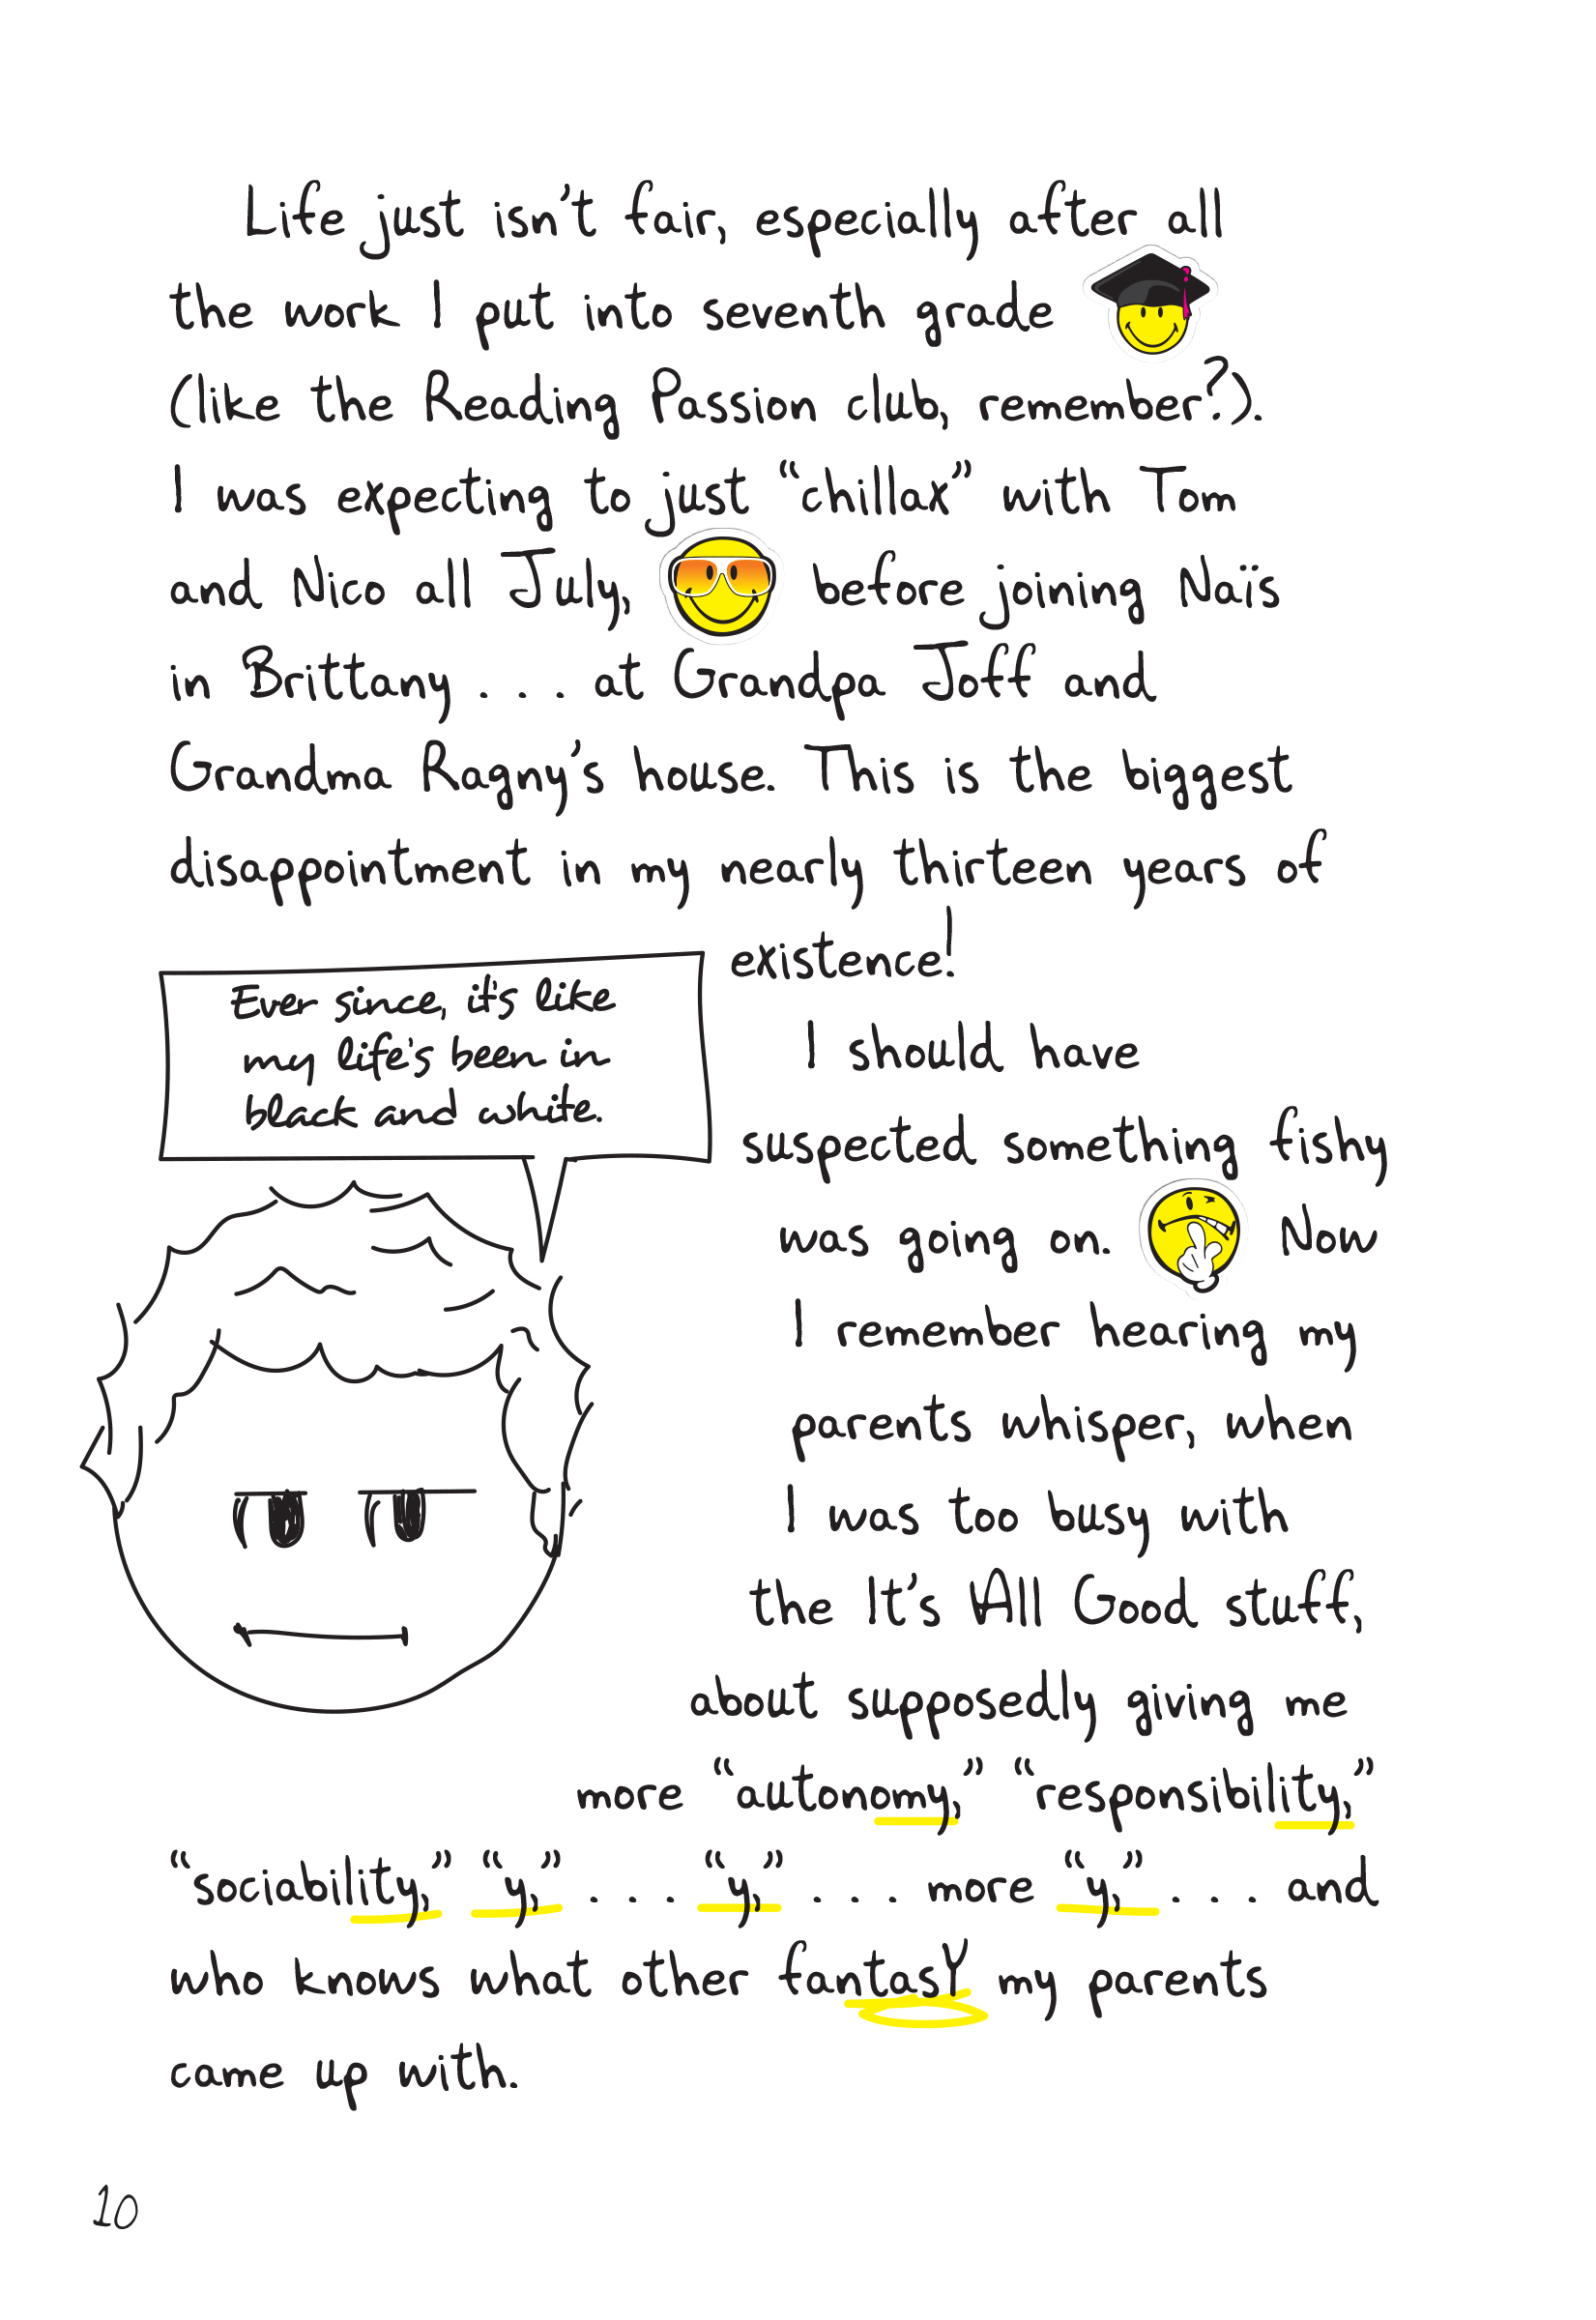 Life just isn’t fair, especially after all
the work I put into seventh grade
(like the Reading Passion club, remember?).
I was expecting to just “chillax” with Tom
and Nico all July, before joining Naïs
in Brittany . . . at Grandpa Joff and
Grandma Ragny’s house. This is the biggest
disappointment in my nearly thirteen years of
existence!
Ever since, it’s like
my life’s been in
black and white.
I should have
suspected something fishy
was going on. Now
I remember hearing my
parents whisper, when
I was too busy with
the It’s All Good stuff,
about supposedly giving me
more “autonomy,” “responsibility,”
“sociability,” “y,” . . . “y,” . . . more “y,” . . . and
who knows what other fantasY my parents
came up with.
10